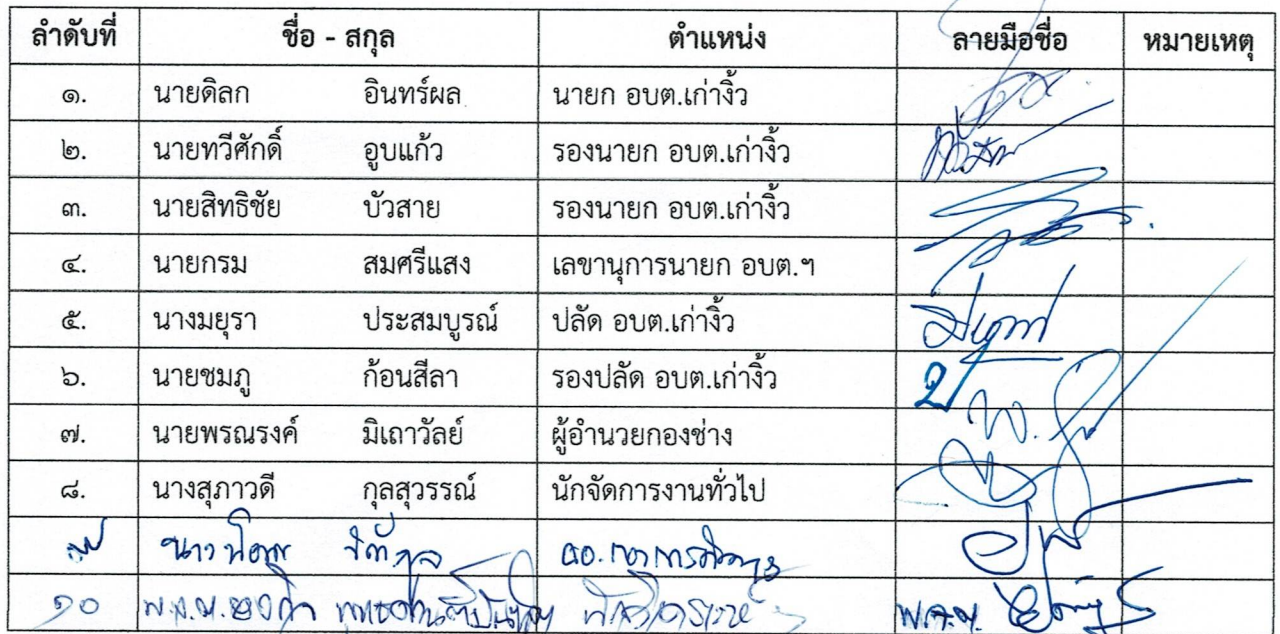 ลำดับที่ ชื่อ - สกุล ตำแหน่ง ลายมือชื่อ หมายเหตุ
๑. นายดิลก อินทร์ผล นายก อบต.เก่างิ้ว
๒. นายทวีศักดิ์ อูบแก้ว รองนายก อบต.เก่างิ้ว
๓. นายสิทธิชัย บัวสาย รองนายก อบต.เก่างิ้ว
๔. นายกรม สมศรีแสง เลขานุการนายก อบต.ฯ
๕. นางมยุรา ประสมบูรณ์ ปลัด อบต.เก่างิ้ว
๖. นายชมภู ก้อนสีลา รองปลัด อบต.เก่างิ้ว
๗. นายพรณรงค์ มิเถาวัลย์ ผู้อำนวยกองช่าง
๘. นางสุภาวดี กุลสุวรรณ์ นักจัดการงานทั่วไป
๙
๑๐